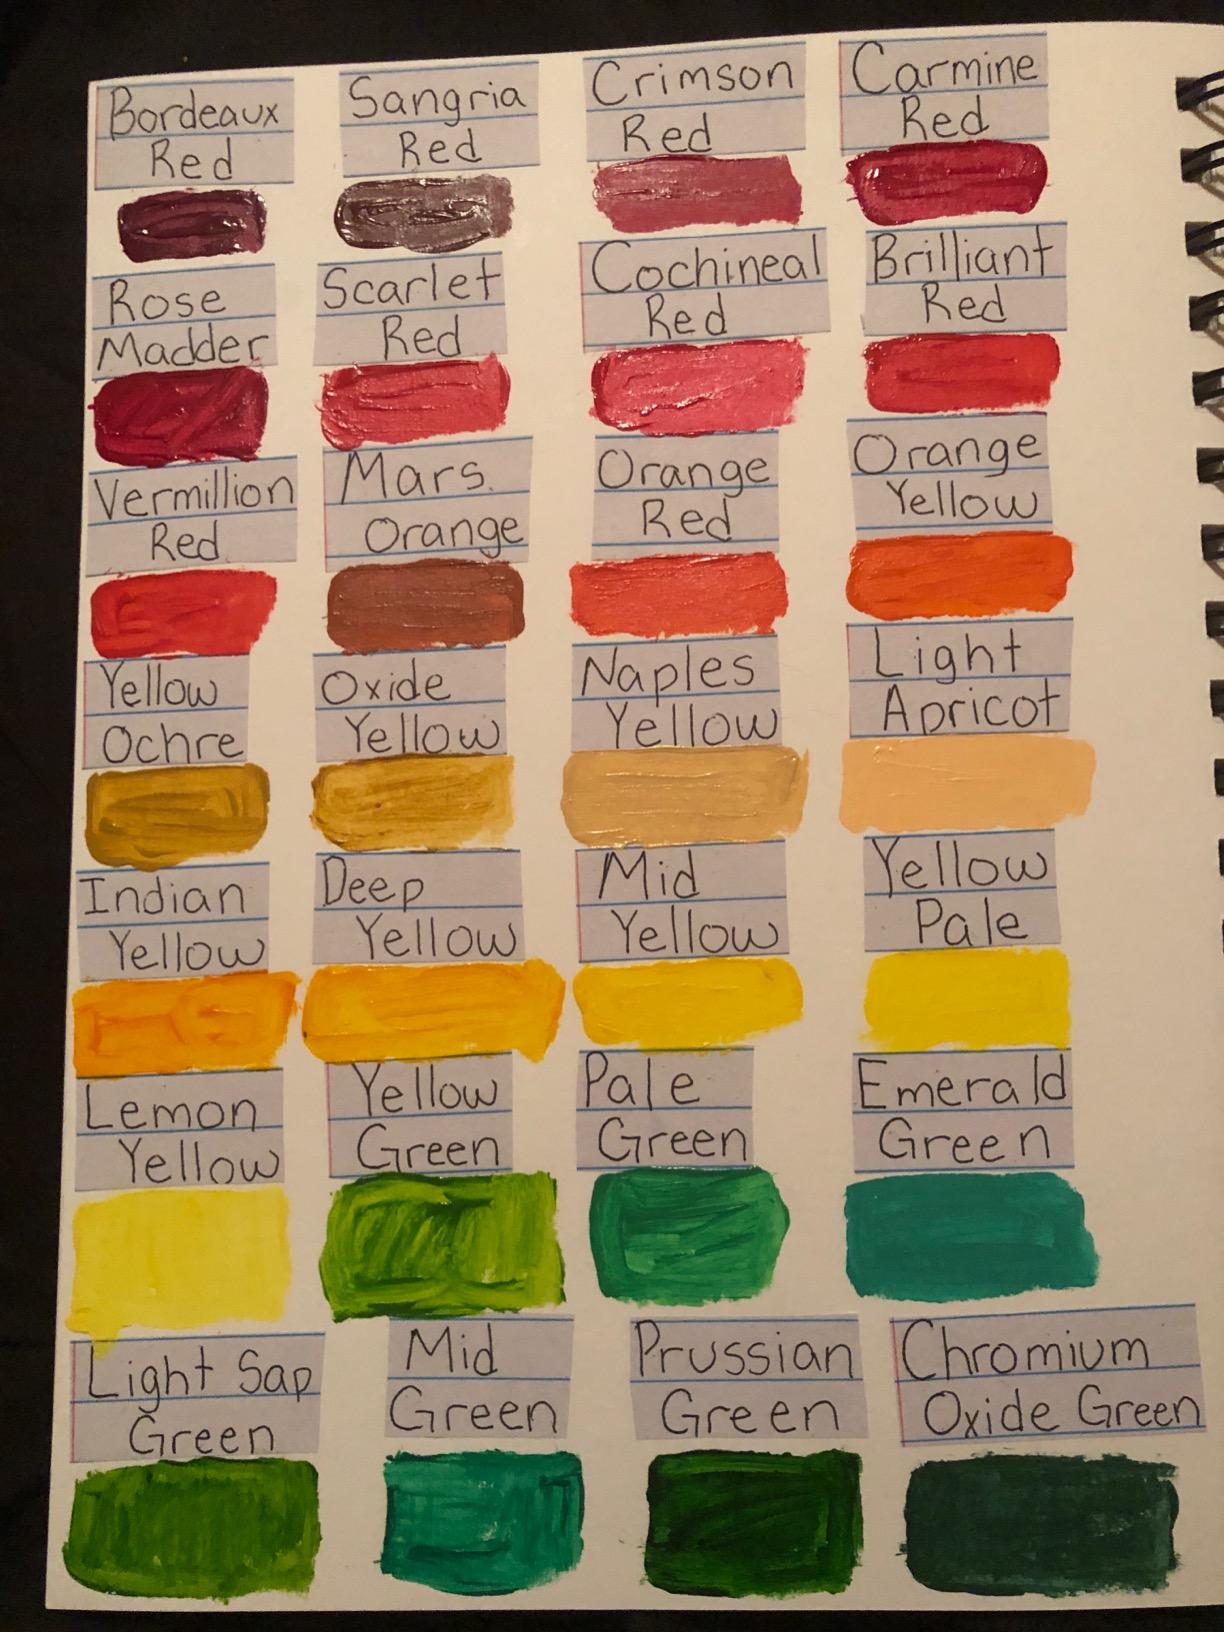 Bordeaux
Red
Sangria
Red
Crimson
Red
Carmine
Red
Rose
Madder
Scarlet
Red
Cochineal
Red
Brilliant
Red
Vermillion
Red
Mars.
Orange
Orange
Red
Orange
Yellow
Yellow
Ochre
Oxide
Yellow
Naples
Yellow
Light
Apricot
Indian
Yellow
Deep
Yellow
Mid
Yellow
Yellow
Pale
Lemon
Yellow
Yellow
Green
Pale
Green
Emerald
Green
Light Sap
Green
Mid
Green
Prussian
Green
Chromium
Oxide Green